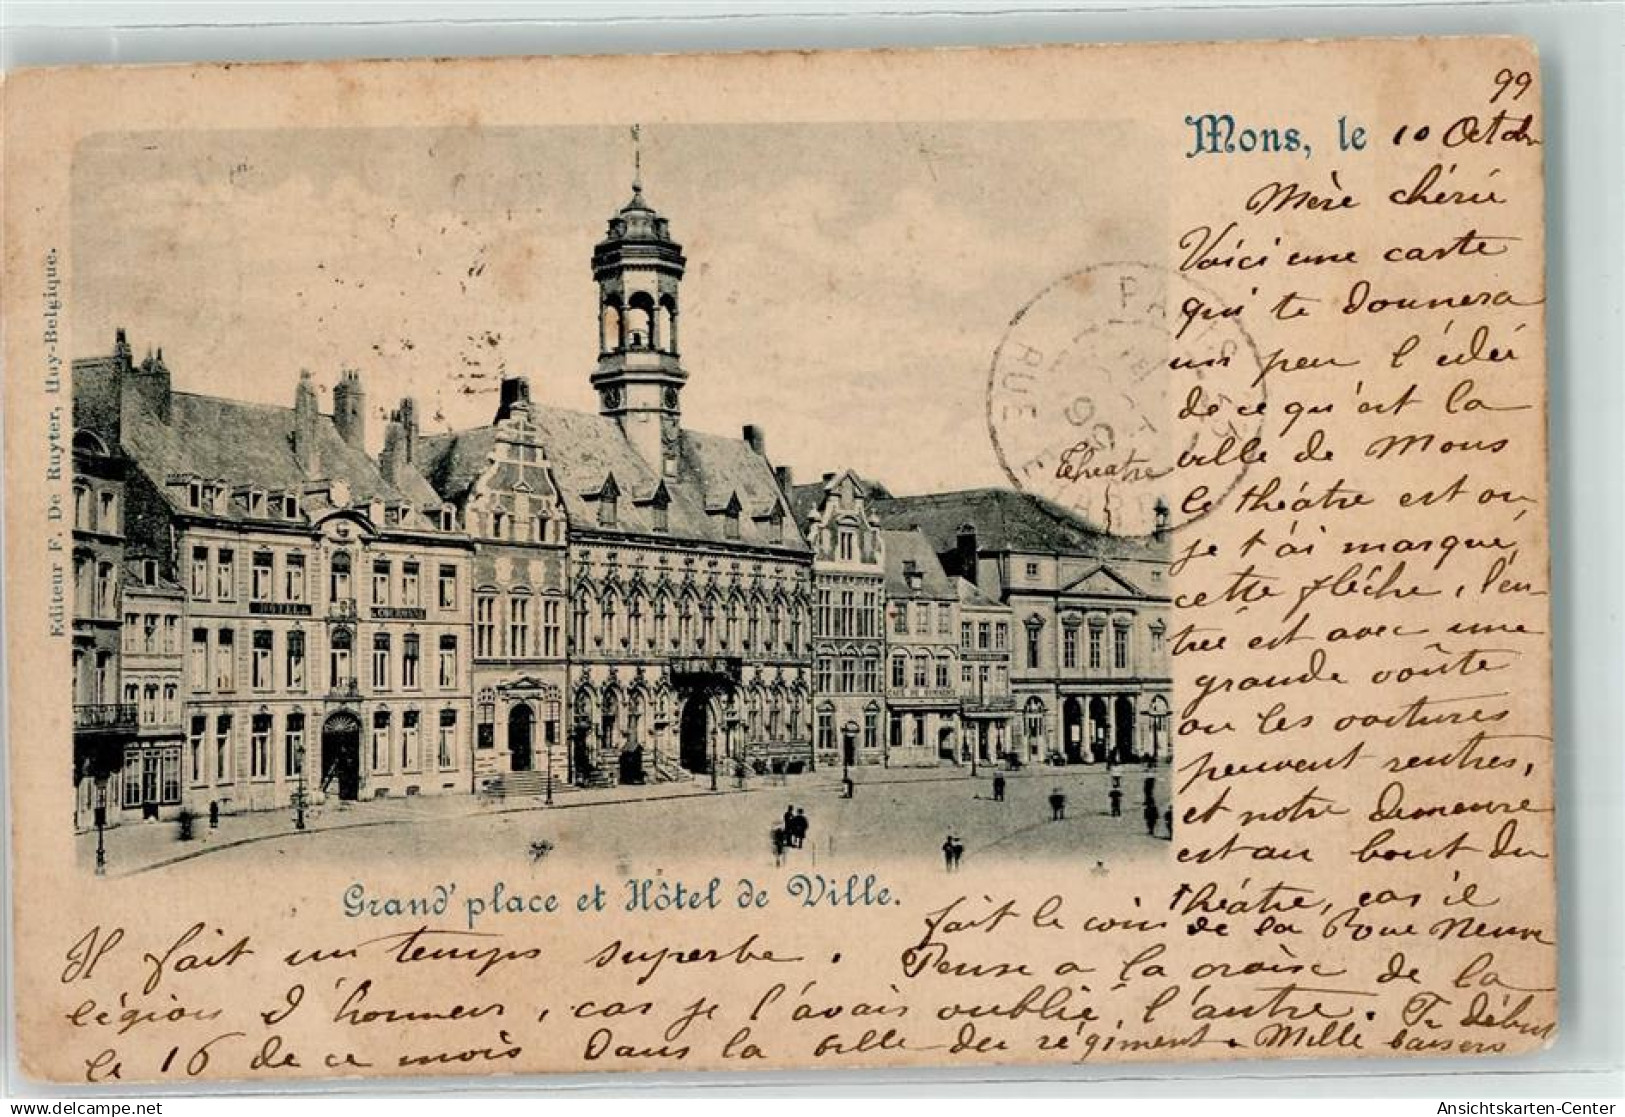 99
Mons, le 10 Octobr
Mère chérie
Voici une carte
qui te donnera
un peu l'idée
de ce qu'est la
ville de Mons
le théâtre est où
je t'ai marqué
cette flêche, l'en-
trée est avec une
grande voûte
ou les voitures
peuvent rentrer,
et notre demeure
est au bout du
théâtre, car il
fait le coin de la Roue Neuve
Il fait un temps superbe. Pense a la croix de la
légion d'honneur, car je l'avais oublié, l'autre. Tu début
le 16 de ce mois dans la ville du régiment. Mille baisers
Grand' place et Hôtel de Ville.
Editeur F. De Ruyter, Huy-Belgique.
Théatre
PARIS
RUE
HOTEL
CAFE DU COMMERCE
Ansichtskarten-Center